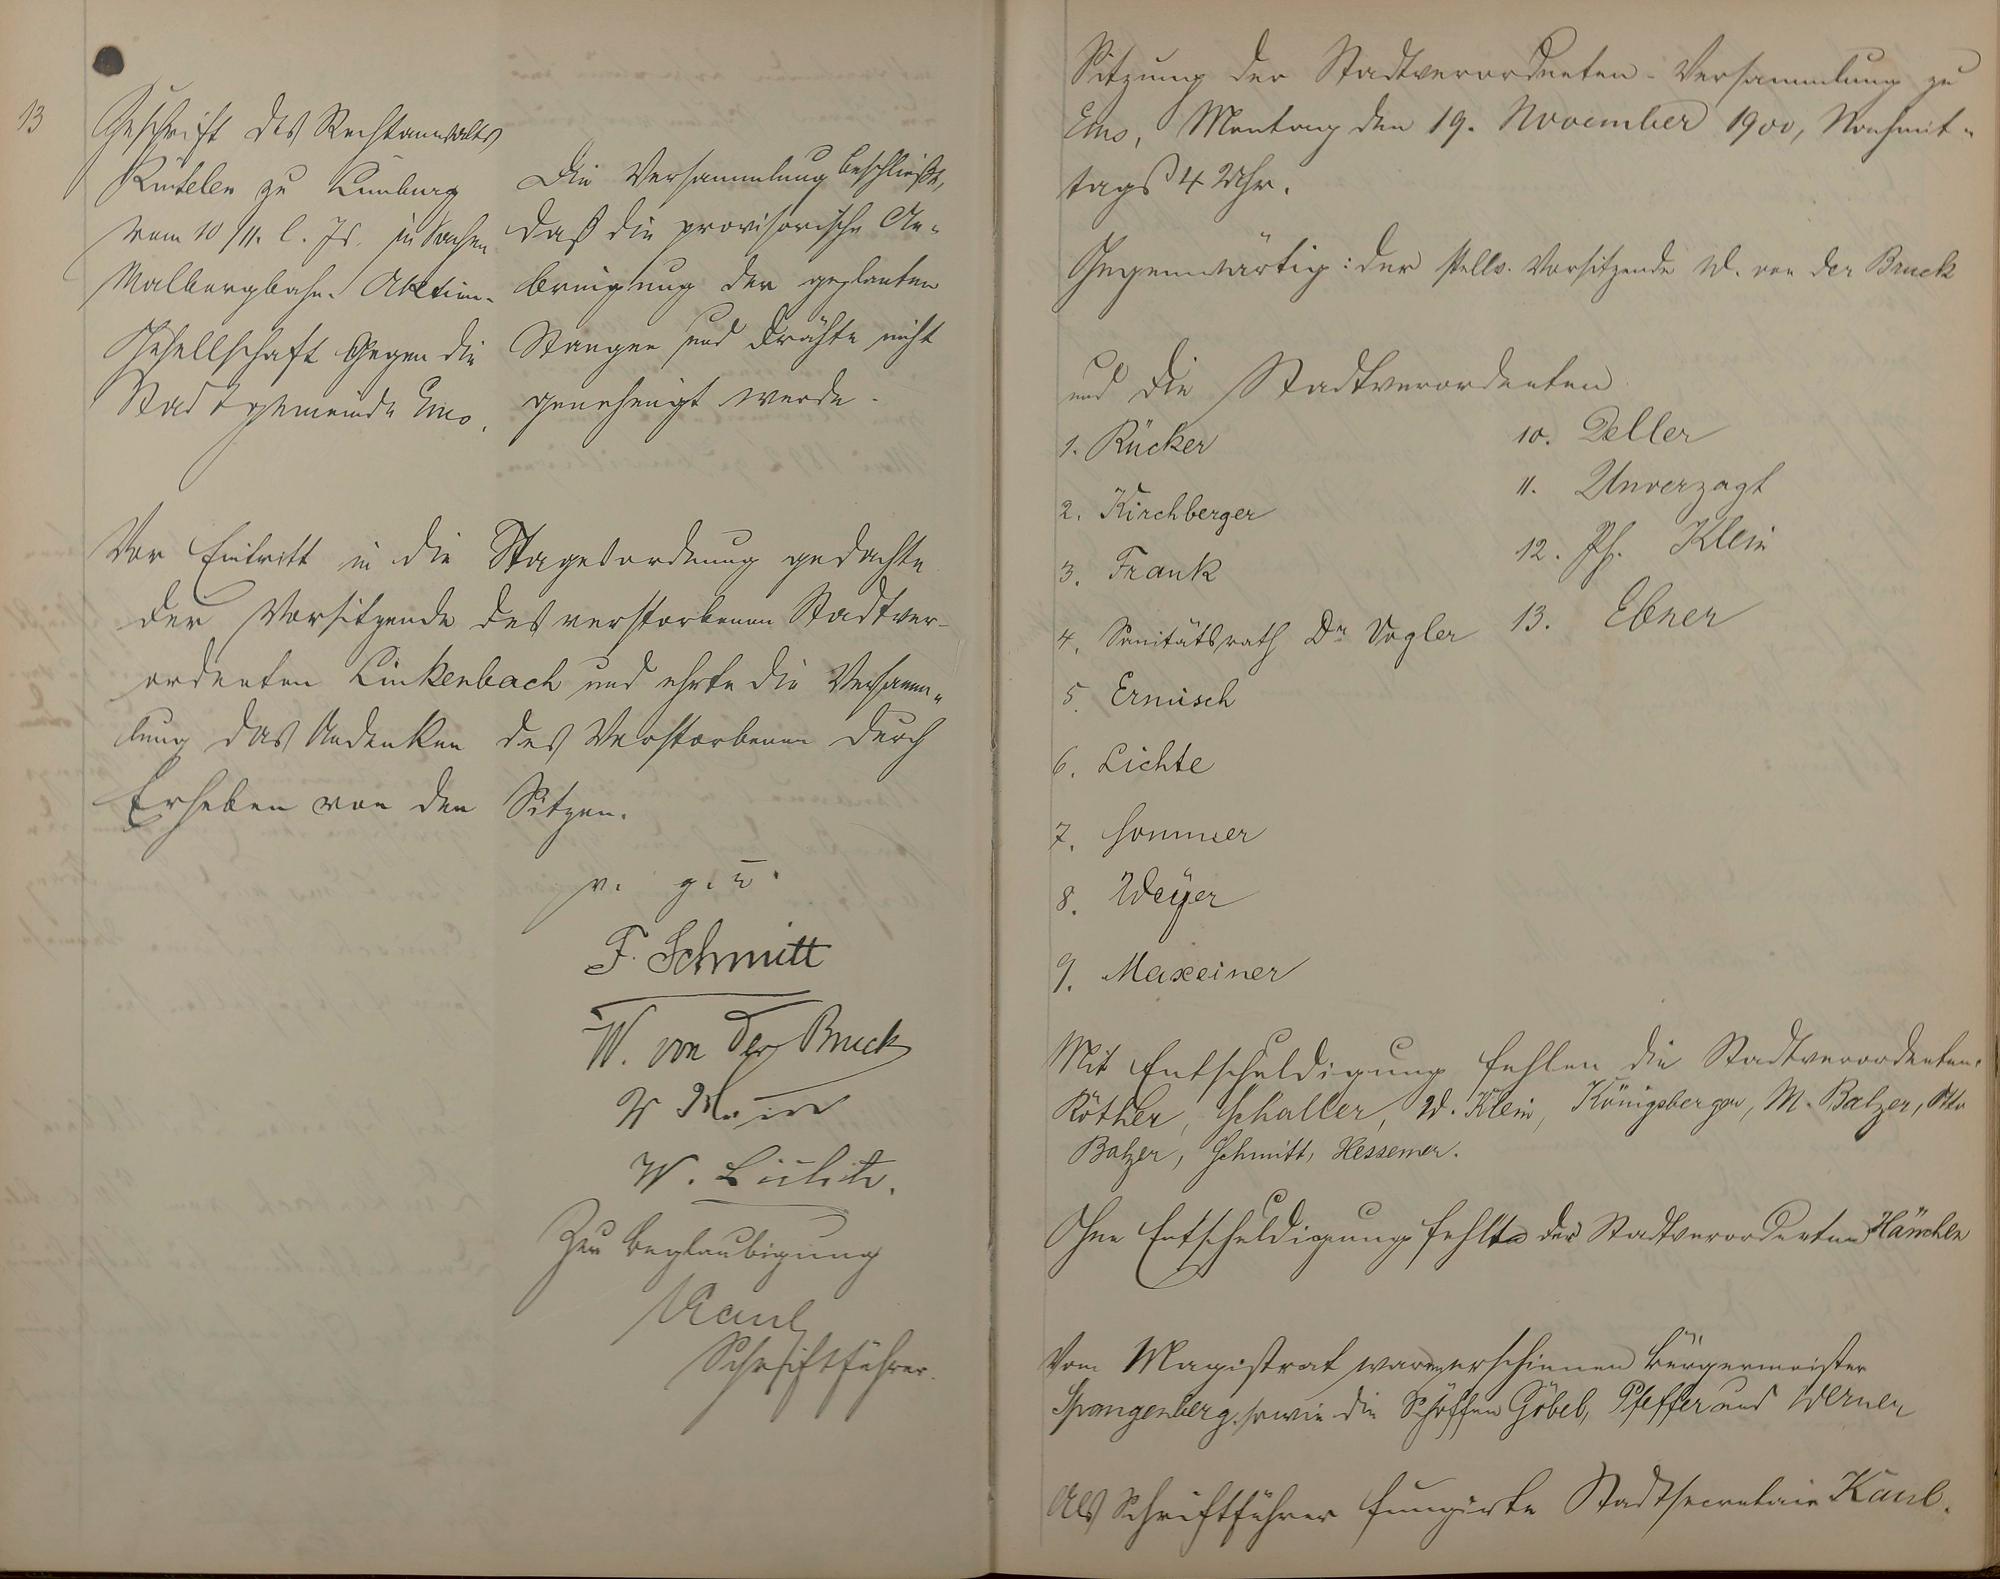 13
Zuschrift des Rechtsanwalts
zu Limburg
vom 10/11. l. Js. in Sachen
Malbergbahn-Aktien-
Gesellschaft gegen die
Stadtgemeinde Ems.
Die Versammlung beschließt,
daß die provisorische An-
bringung der geplanten
Stangen und Drähte nicht
genehmigt werde.
Vor Eintritt in die Tagesordnung gedachte
der Vorsitzende des verstorbenen Stadtver-
ordneten Linkenbach und ehrte die Versamm-
lung das Andenken des Verstorbenen durch
Erheben von den Sitzen.
v. g. u.
F. Schmitt
W. von der Bruck
W
W.
Zur Beglaubigung
Kaul
Schriftführer.
Sitzung der Stadtverordneten-Versammlung zu
Ems, Montag den 19. November 1900, Nachmit-
tags 4 Uhr.
Gegenwärtig: der stellv. Vorsitzende W. von der Bruck
und die Stadtverordneten
1. Rücker
2. Kirchberger
3. Frank
4. Sanitätsrath Dr Vogler
5. Ermisch
6. Lichte
7. Sommer
8. Weyer
9. Maxeiner
10. Deller
11. Unverzagt
12. Ph. Klein
13. Ebner
Mit Entschuldigung fehlen die Stadtverordneten:
Röther, Schaller, W. Klein, Königsberger, M. Balzer, Otto
Balzer, Schmitt, Hessemer.
Ohne Entschuldigung fehlte der Stadtverordneten Hänchen
Vom Magistrat waren erschienen Bürgermeister
Spangenberg, sowie die Schöffen Göbel, Pfeffer und Werner
Als Schriftführer fungirte Stadtsecretair Kaul.